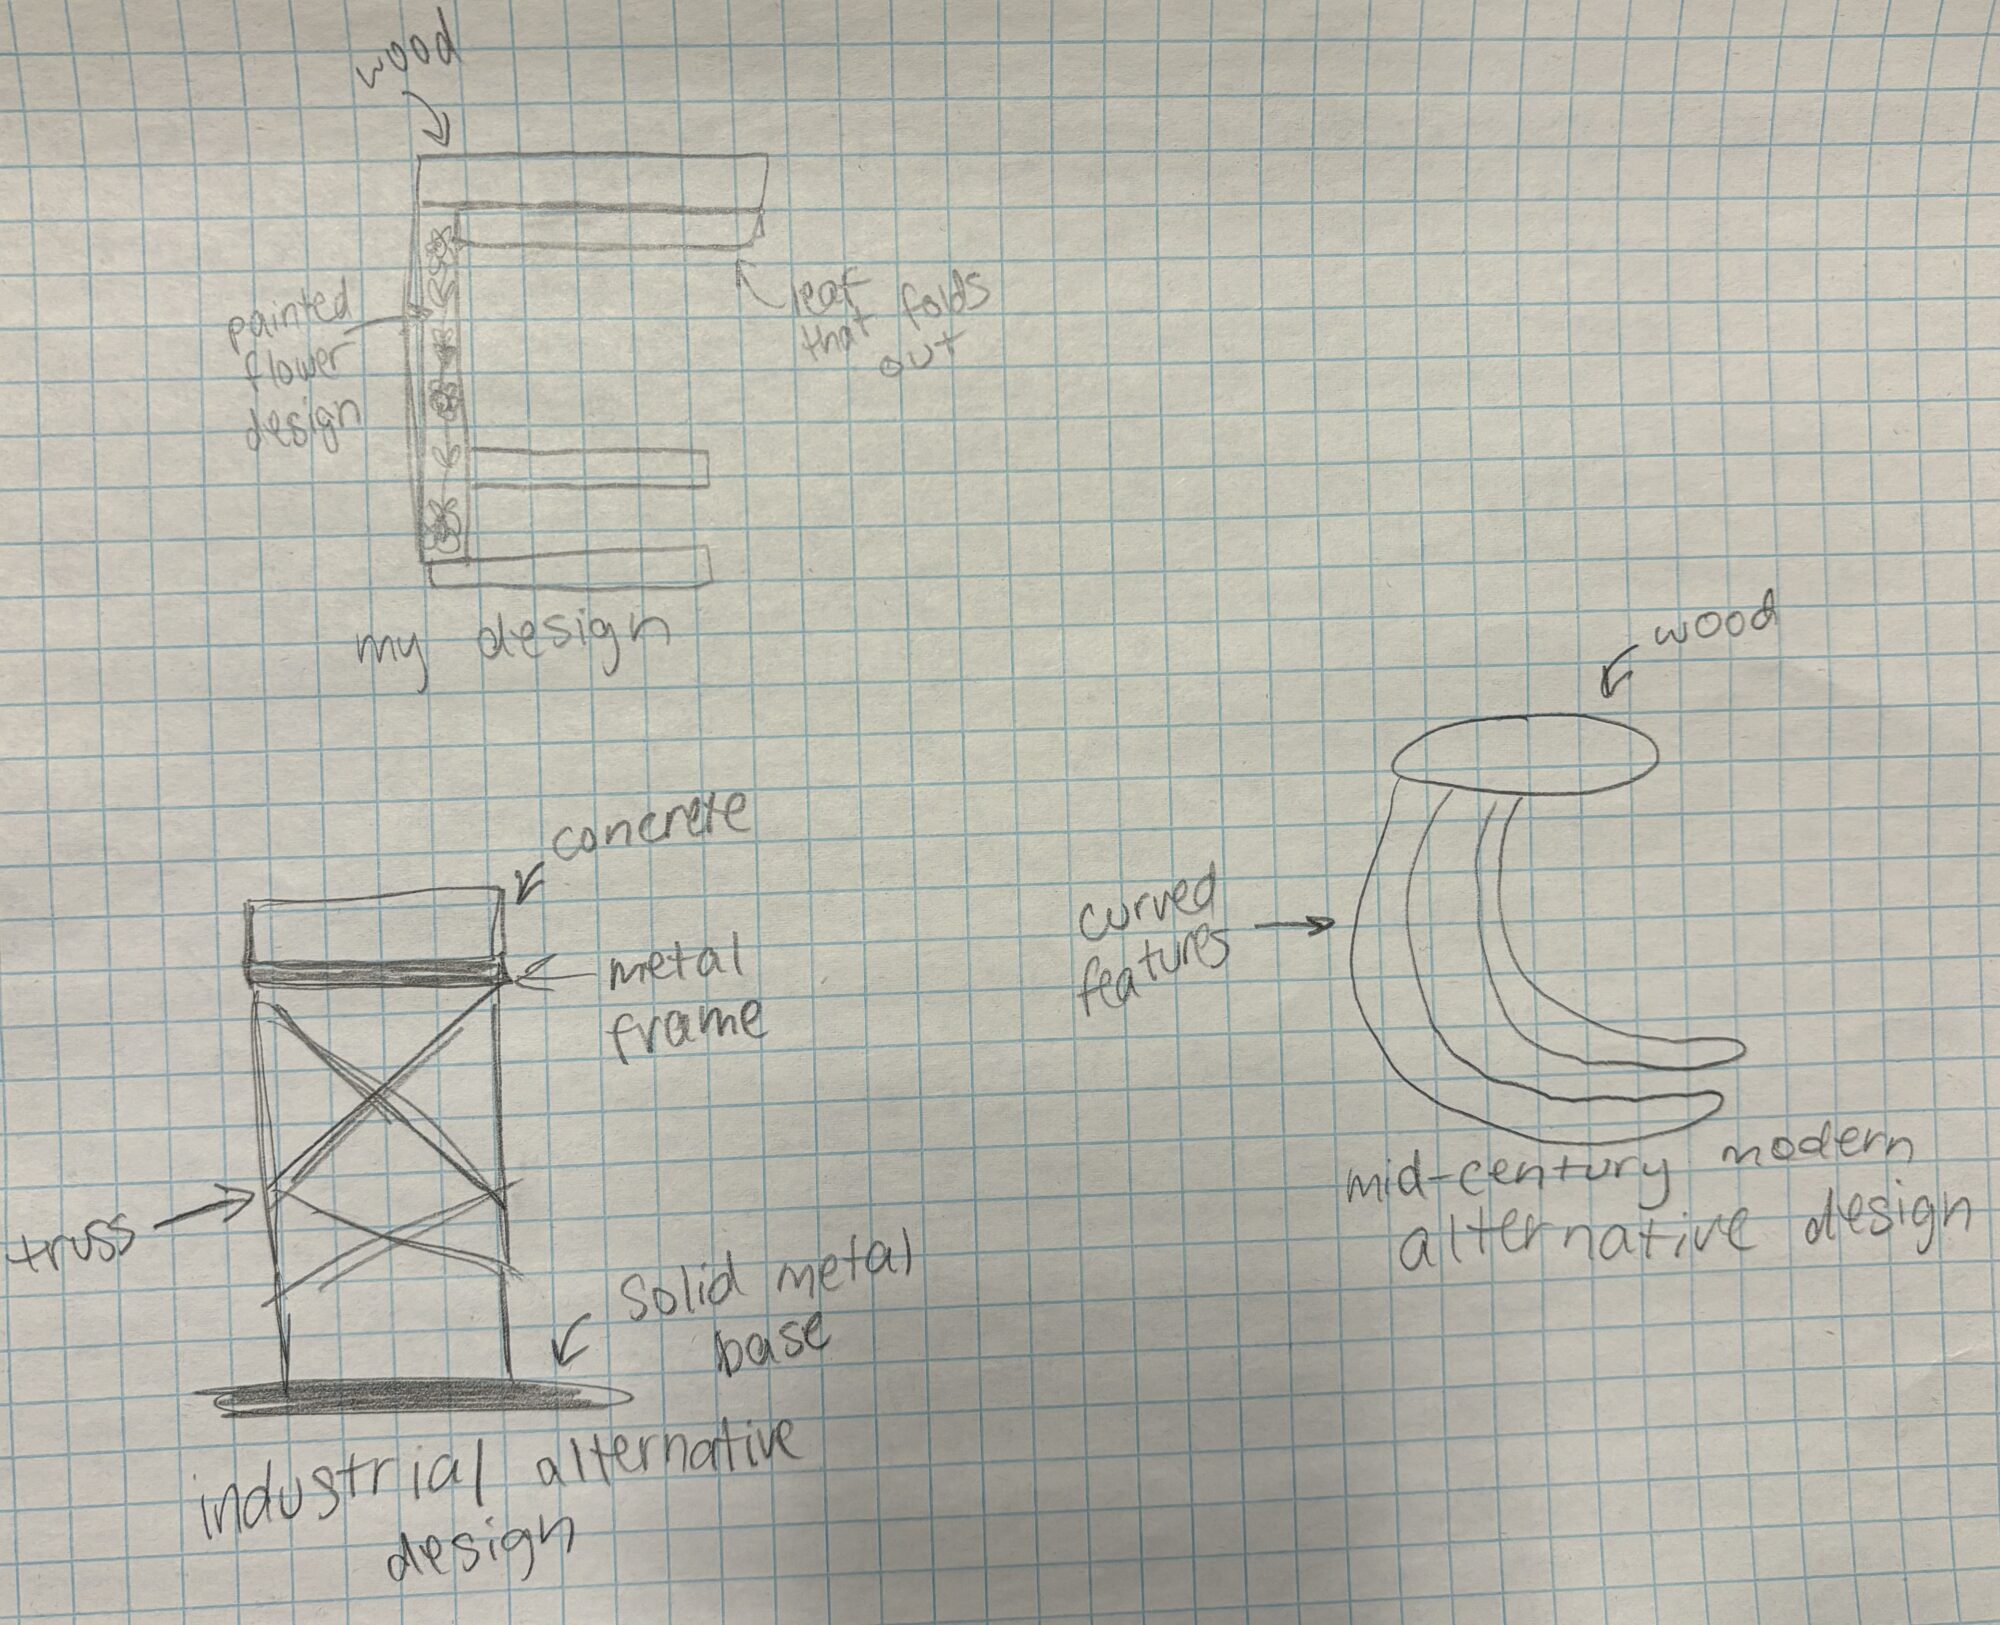 wood
painted
flower
design
leaf
that folds
out
my design
wood
curved
features
mid-century modern
alternative design
concrete
metal
frame
truss
solid metal
base
industrial alternative
design